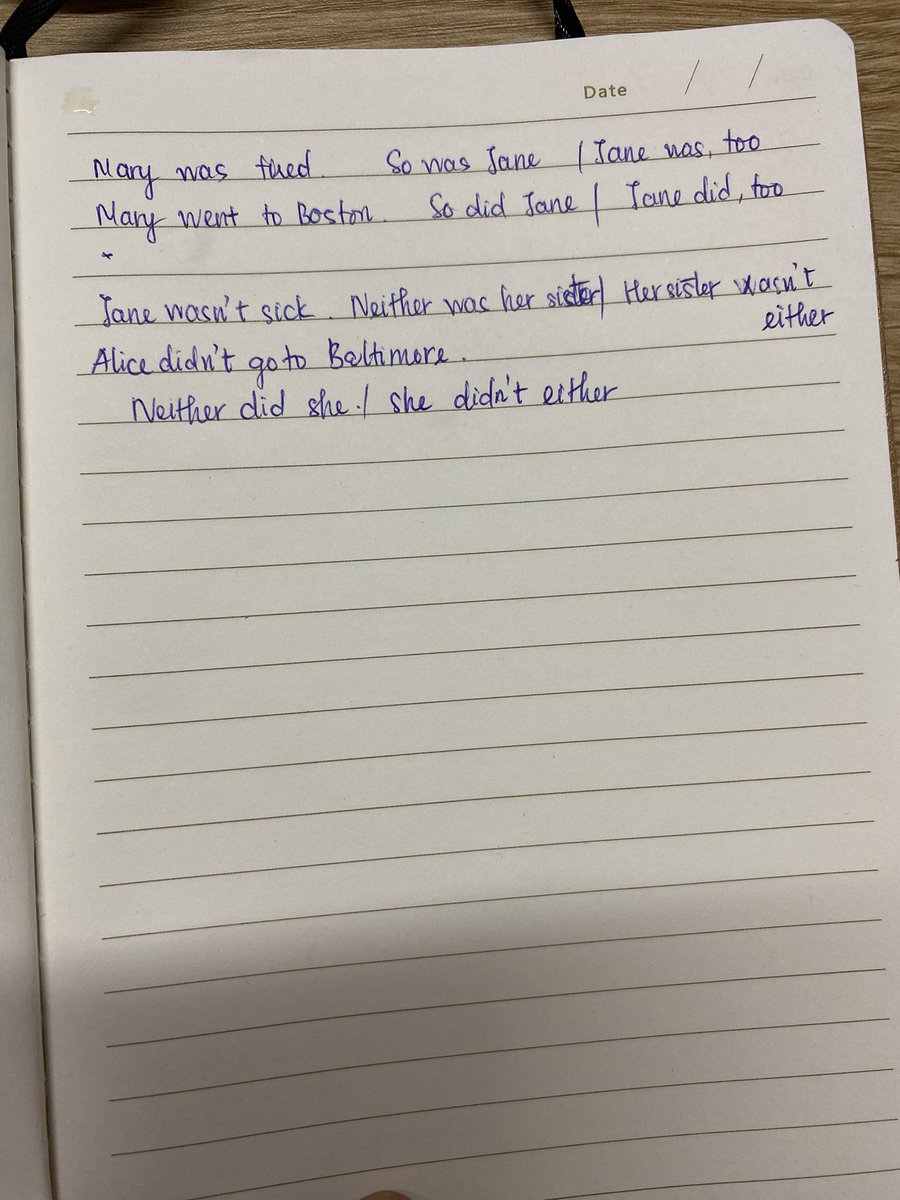 Date / /
Mary was tired. So was Jane / Jane was, too
Mary went to Boston. So did Jane / Jane did, too
Jane wasn't sick. Neither was her sister / Her sister wasn't
either
Alice didn't go to Baltimore.
Neither did she. / she didn't either